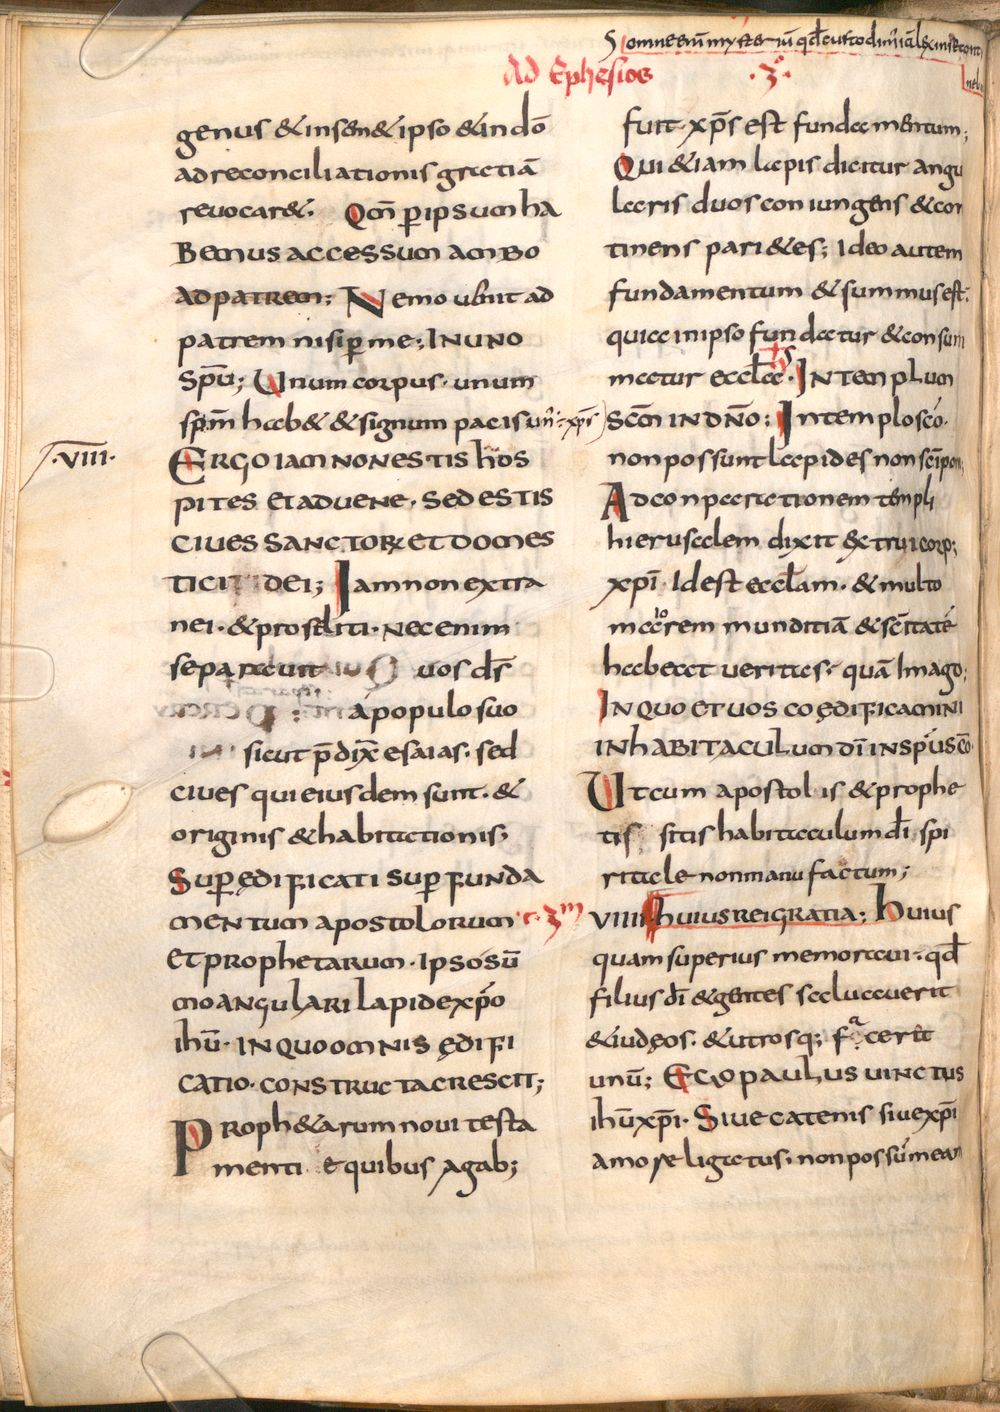 Ad Ephesios .3°.
genus & insem& ipso & in dō
ad reconciliationis gratiā
reuocar&. Qm̄ p̄ ipsum ha
bemus accessum ambo
ad patrem; Nemo ubnit ad
patrem nisi p̄ me; In uno
Spū; Unum corpus. unum
spm̄ hab& & signum pacis un̄. xp̄s
.VIII.
Ergo iam non estis hos
pites et aduene. sed estis
ciues sanctorꝝ et domes
tici dei; Iam non extra
nei. & proseliti. nec enim
separauit uos ds̄
a populo suo
sicut p̄dix̄ esaias. sed
ciues qui eiusdem sunt. &
originis & habitationis;
Sup̄ ędificati sup̄ funda
mentum apostolorum
et prophetarum. Ipso sū
mo angulari lapide xp̄o
ihū. In quo omnis ędifi
catio. constructa crescit;
Proph&arum noui testa
menti e quibus agab;
fuit. xp̄s est fundamentum;
Qui &iam lapis dicitur angu
laris duos coniungens & con
tinens pari&es; Ideo autem
fundamentum & summus est.
quia in ipso fundatur & consum
matur eccl̄a. In templum
Scm̄ in dn̄o; In templo scō.
non possunt lapides non sc̄i pon;
Ad conparationem templi
hierusalem dixit &trui corp;
xp̄i. Id est eccl̄am. & multo
maiorem munditiā & sc̄itatē
habeat ueritas. quā Imago;
In quo et uos coędificamini
in habitaculum dī in spū scō.
Ut cum apostolis & prophe
tis sitis habitaculum dī spi
ritale non manu factum;
VIIII huius rei gratia; Huius
quam superius memoraui. qd̄
filius dī & gentes saluauerit
& iudęos. & utrosq; facerit
unū; Ego paulus uinctus
ihū xp̄i. Siue catenis siue xp̄i
amore ligatus. non possum ean